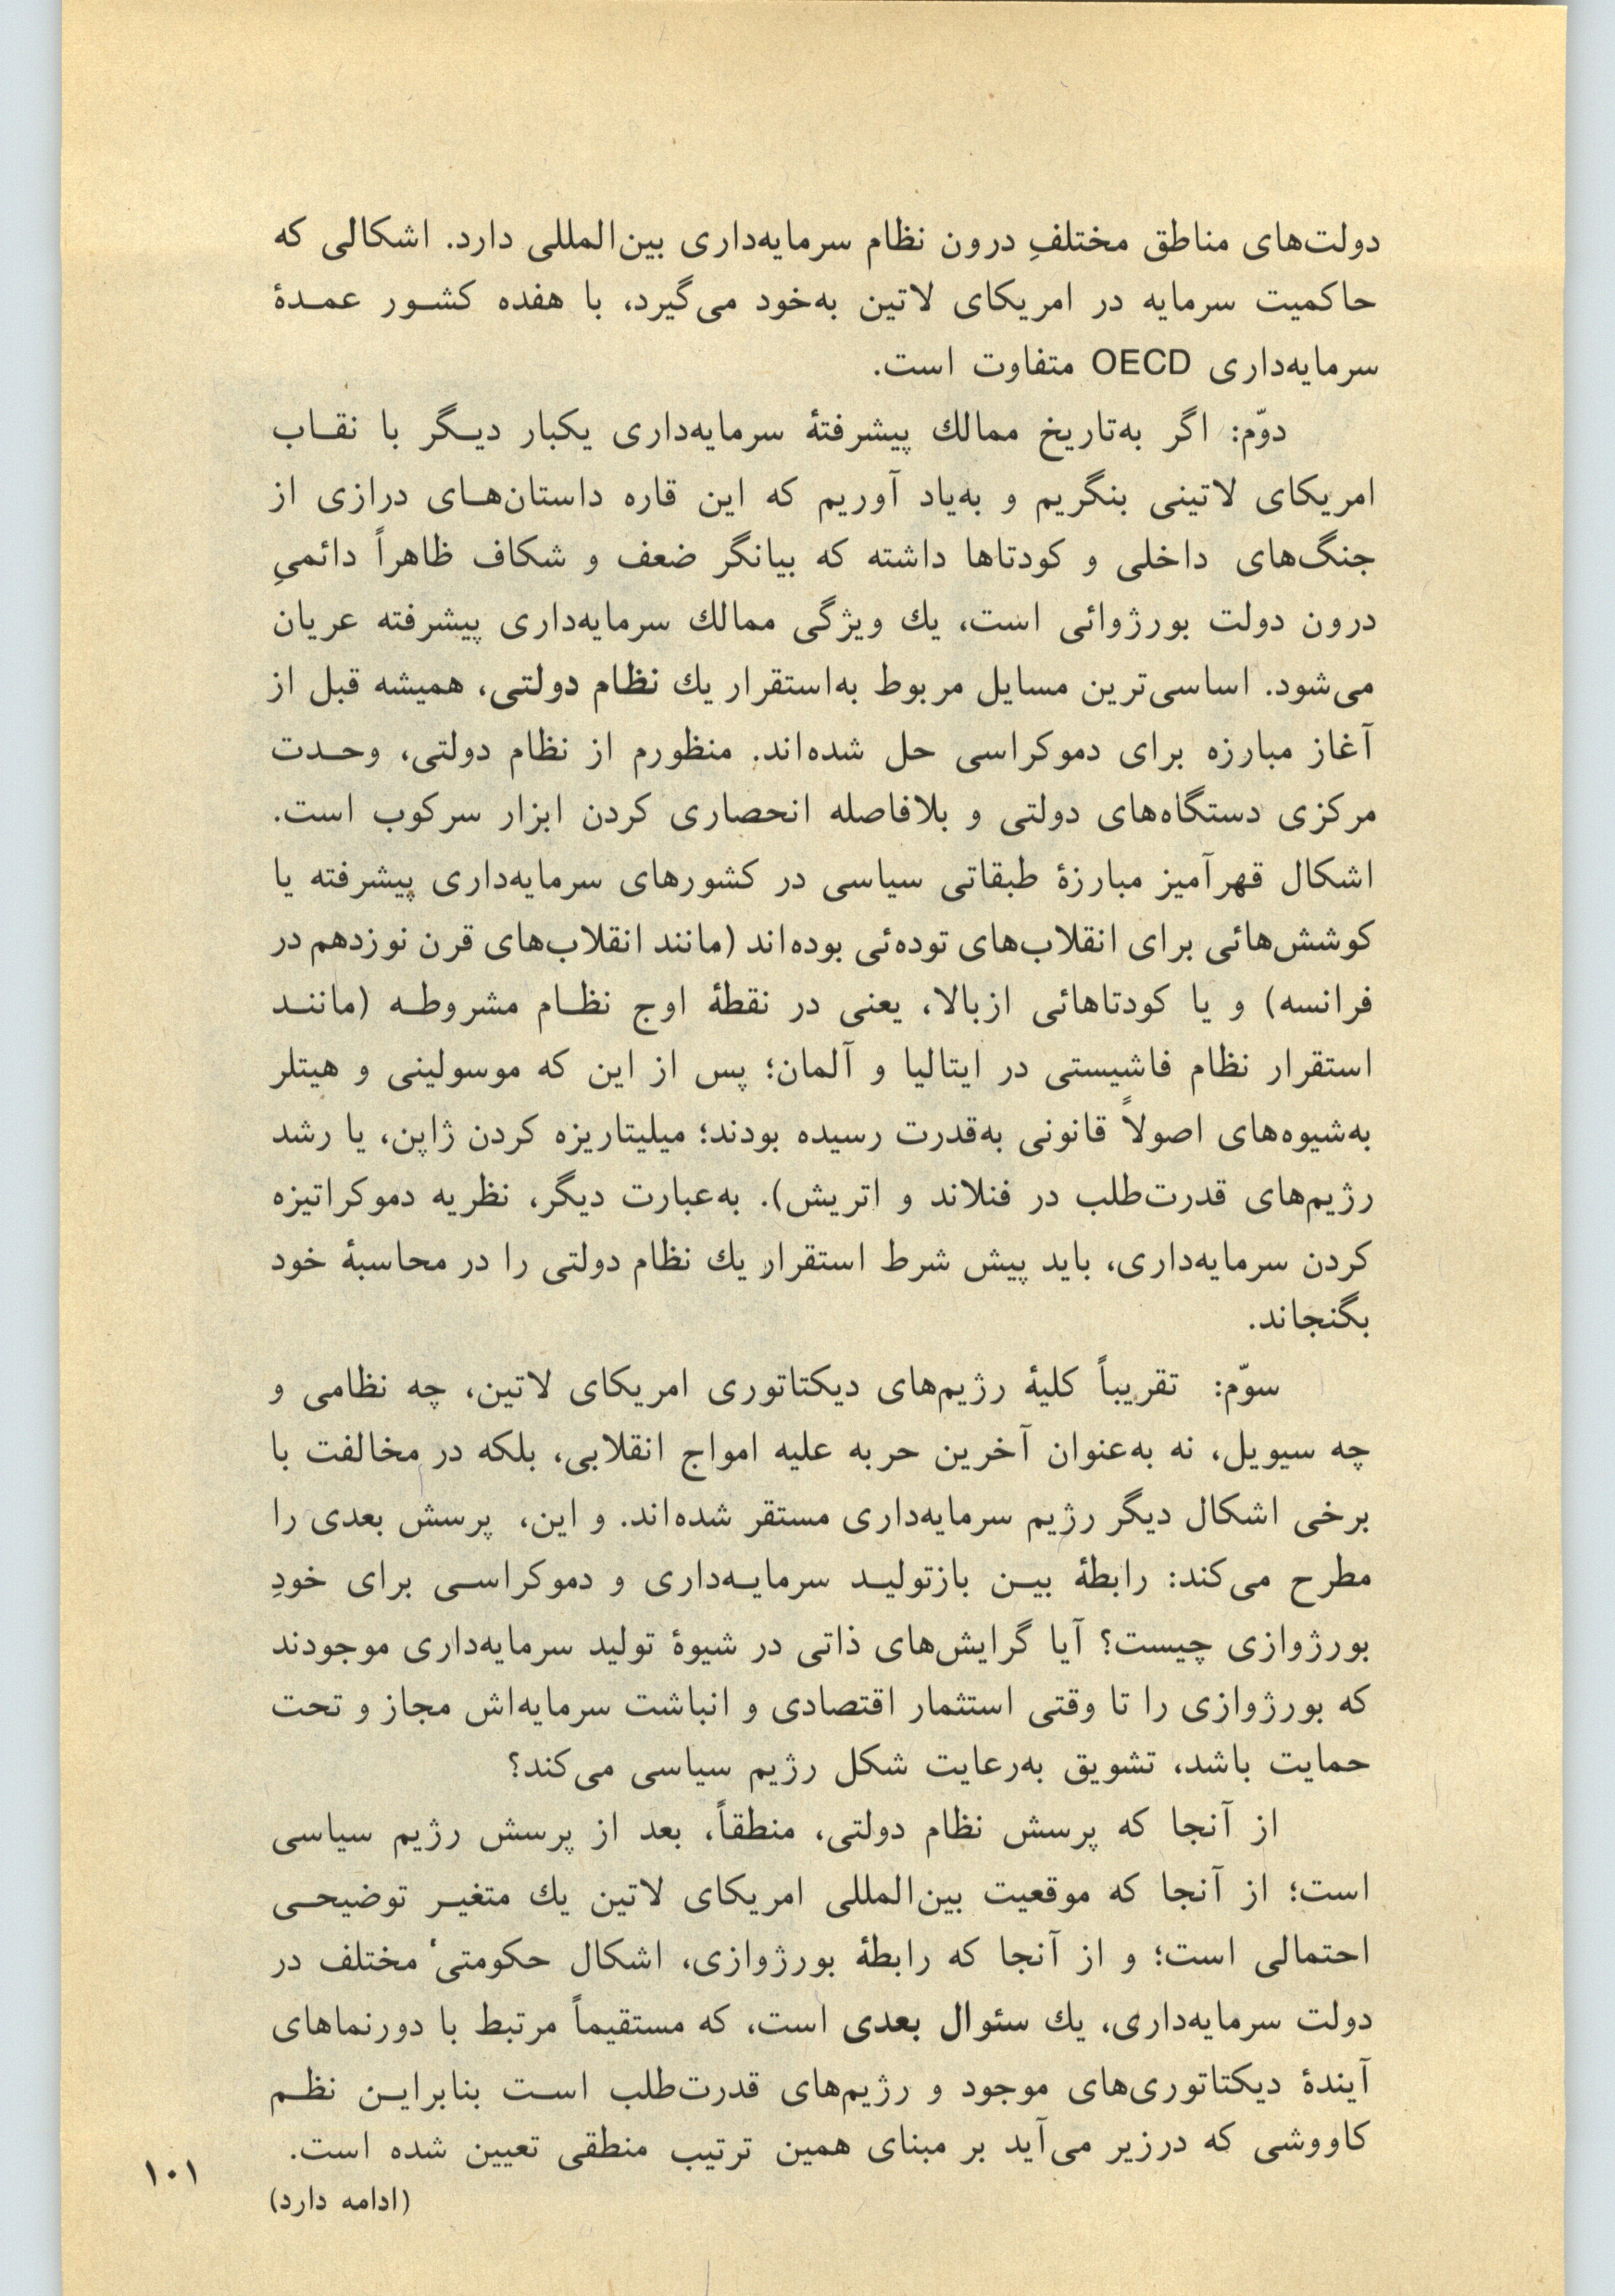 دولت‌های مناطق مختلفِ درون نظام سرمایه‌داری بین‌المللی دارد. اشکالی که
حاکمیت سرمایه در امریکای لاتین به‌خود می‌گیرد، با هفده کشور عمدهٔ
سرمایه‌داری OECD متفاوت است.
دوّم: اگر به‌تاریخ ممالك پیشرفتهٔ سرمایه‌داری یکبار دیگر با نقاب
امریکای لاتینی بنگریم و به‌یاد آوریم که این قاره داستان‌های درازی از
جنگ‌های داخلی و کودتاها داشته که بیانگر ضعف و شکاف ظاهراً دائمیِ
درون دولت بورژوائی است، یك ویژگی ممالك سرمایه‌داری پیشرفته عریان
می‌شود. اساسی‌ترین مسایل مربوط به‌استقرار یك نظام دولتی، همیشه قبل از
آغاز مبارزه برای دموکراسی حل شده‌اند. منظورم از نظام دولتی، وحدت
مرکزی دستگاه‌های دولتی و بلافاصله انحصاری کردن ابزار سرکوب است.
اشکال قهرآمیز مبارزهٔ طبقاتی سیاسی در کشورهای سرمایه‌داری پیشرفته یا
کوشش‌هائی برای انقلاب‌های توده‌ئی بوده‌اند (مانند انقلاب‌های قرن نوزدهم در
فرانسه) و یا کودتاهائی ازبالا، یعنی در نقطهٔ اوج نظام مشروطه (مانند
استقرار نظام فاشیستی در ایتالیا و آلمان؛ پس از این که موسولینی و هیتلر
به‌شیوه‌های اصولاً قانونی به‌قدرت رسیده بودند؛ میلیتاریزه کردن ژاپن، یا رشد
رژیم‌های قدرت‌طلب در فنلاند و اتریش). به‌عبارت دیگر، نظریه دموکراتیزه
کردن سرمایه‌داری، باید پیش شرط استقرار یك نظام دولتی را در محاسبهٔ خود
بگنجاند.
سوّم: تقریباً کلیهٔ رژیم‌های دیکتاتوری امریکای لاتین، چه نظامی و
چه سیویل، نه به‌عنوان آخرین حربه علیه امواج انقلابی، بلکه در مخالفت با
برخی اشکال دیگر رژیم سرمایه‌داری مستقر شده‌اند. و این، پرسش بعدی را
مطرح می‌کند: رابطهٔ بین بازتولید سرمایه‌داری و دموکراسی برای خودِ
بورژوازی چیست؟ آیا گرایش‌های ذاتی در شیوهٔ تولید سرمایه‌داری موجودند
که بورژوازی را تا وقتی استثمار اقتصادی و انباشت سرمایه‌اش مجاز و تحت
حمایت باشد، تشویق به‌رعایت شکل رژیم سیاسی می‌کند؟
از آنجا که پرسش نظام دولتی، منطقاً، بعد از پرسش رژیم سیاسی
است؛ از آنجا که موقعیت بین‌المللی امریکای لاتین یك متغیر توضیحی
احتمالی است؛ و از آنجا که رابطهٔ بورژوازی، اشکال حکومتی‘ مختلف در
دولت سرمایه‌داری، یك سئوال بعدی است، که مستقیماً مرتبط با دورنماهای
آیندهٔ دیکتاتوری‌های موجود و رژیم‌های قدرت‌طلب است بنابراین نظم
کاووشی که درزیر می‌آید بر مبنای همین ترتیب منطقی تعیین شده است.
(ادامه دارد)
۱۰۱